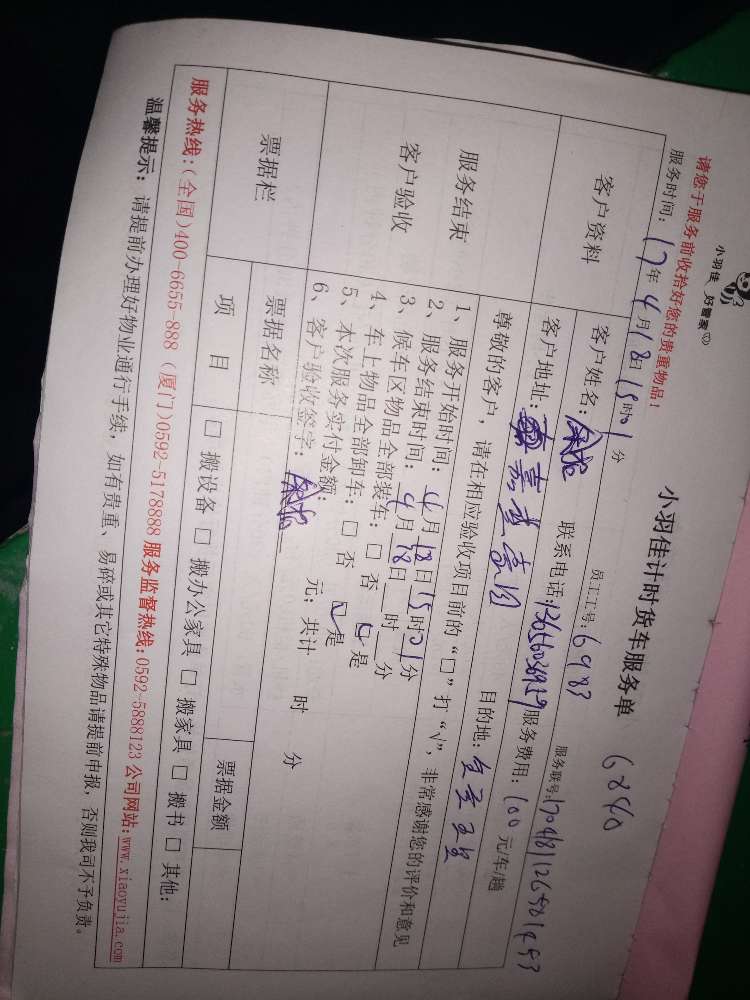 小羽佳 好管家
小羽佳计时货车服务单 6840
请您于服务前收拾好您的贵重物品!
服务时间: 17年 4月18日15时01分 员工工号: 6983 服务联号:
客户资料
客户姓名: 联系电话: 服务费用: 100元/车/趟
客户地址: 目的地:
服务结束
客户验收
尊敬的客户, 请在相应验收项目前的“□”打“√”, 非常感谢您的评价和意见
1、服务开始时间: 4月18日15时01分
2、服务结束时间: 4月18日 时 分
3、候车区物品全部装车: □ 否 ☑ 是
4、车上物品全部卸车: □ 否 ☑ 是
5、本次服务实付金额: 元; 共计 时 分
6、客户验收签字:
票据栏
票据名称 票据金额
项目 □ 搬设备 □ 搬办公家具 □ 搬家具 □ 搬书 □ 其他:
服务热线:(全国)400-6655-888 (厦门)0592-5178888 服务监督热线:0592-5888123 公司网站:www.xiaoyujia.com
温馨提示: 请提前办理好物业通行手续, 如有贵重、易碎或其它特殊物品请提前申报, 否则我司不予负责。